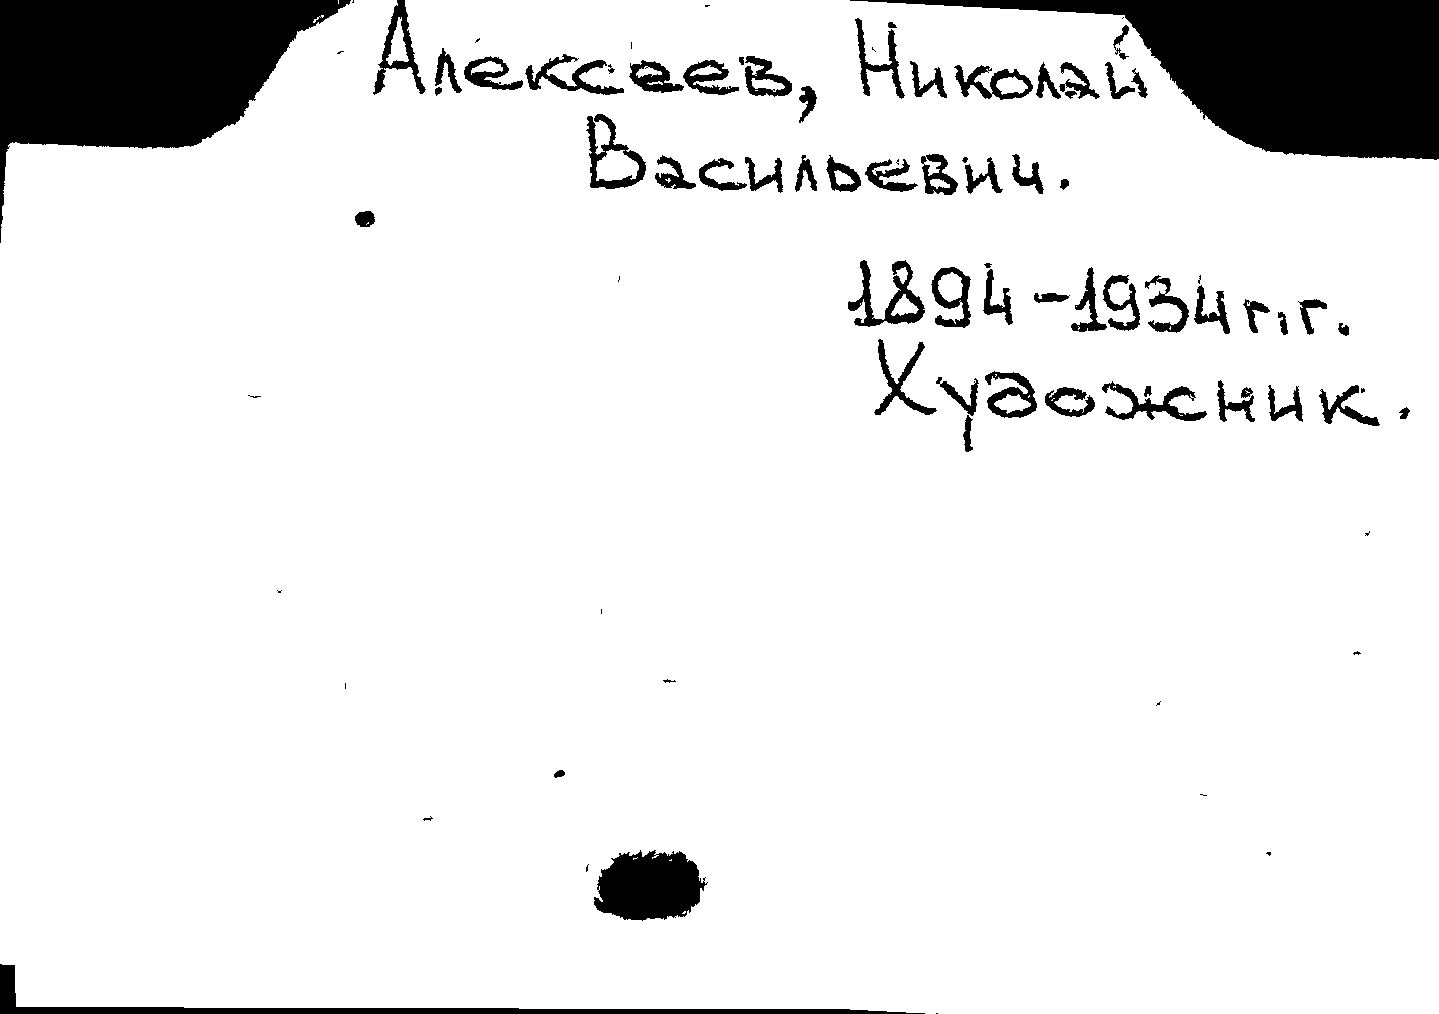 Алексеев, Николай
Васильевич.
1894-1934г.г.
Художник.